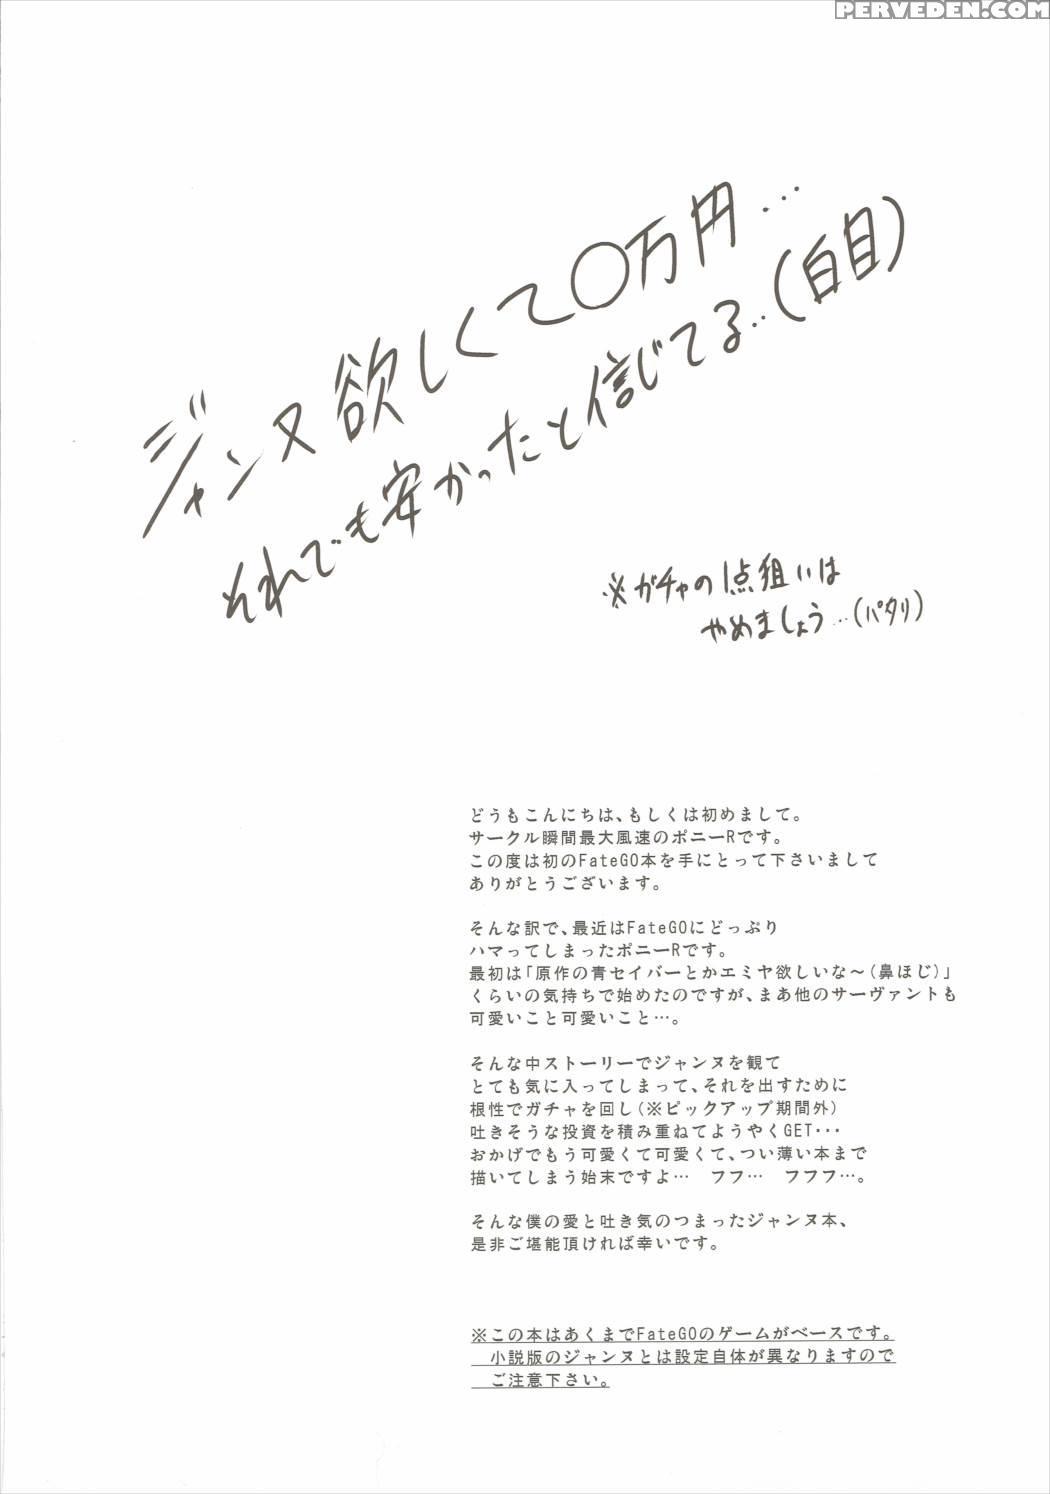 PERVEDEN.COM
ジャンヌ欲しくて〇万円…
それでも安かったと信じてる…(白目)
※ガチャの1点狙いは
やめましょう…(パタリ)
どうもこんにちは、もしくは初めまして。
サークル瞬間最大風速のポニーRです。
この度は初のFateGO本を手にとって下さいまして
ありがとうございます。
そんな訳で、最近はFateGOにどっぷり
ハマってしまったポニーRです。
最初は「原作の青セイバーとかエミヤ欲しいな～(鼻ほじ)」
くらいの気持ちで始めたのですが、まあ他のサーヴァントも
可愛いこと可愛いこと…。
そんな中ストーリーでジャンヌを観て
とても気に入ってしまって、それを出すために
根性でガチャを回し(※ピックアップ期間外)
吐きそうな投資を積み重ねてようやくGET･･･
おかげでもう可愛くて可愛くて、つい薄い本まで
描いてしまう始末ですよ…　フフ…　フフフ…。
そんな僕の愛と吐き気のつまったジャンヌ本、
是非ご堪能頂ければ幸いです。
※この本はあくまでFateGOのゲームがベースです。
小説版のジャンヌとは設定自体が異なりますので
ご注意下さい。